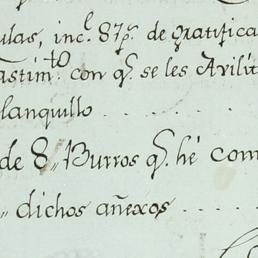 ulas, incl. 87p.s de gratifica
astim.to con q.e se les Avilit
lanquillo . . . . . . .
de 8„ Burros q.e hé com
„ dichos añexos . . . . .